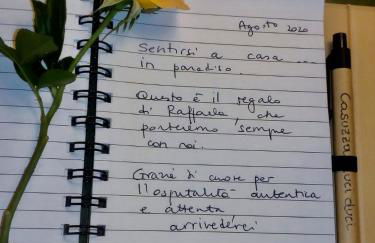 Agosto 2020
Sentirsi a casa ...
in paradiso.
Questo è il regalo
di Raffaella, che
porteremo sempre
con noi.
Grazie di cuore per
l'ospitalità autentica
e attenta
arrivederci
Casuzza duci duci